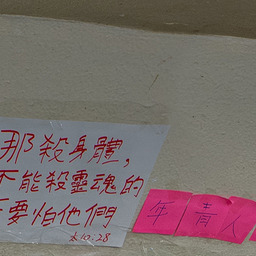 那殺身體,
不能殺靈魂的
要怕他們
太10:28
年青人